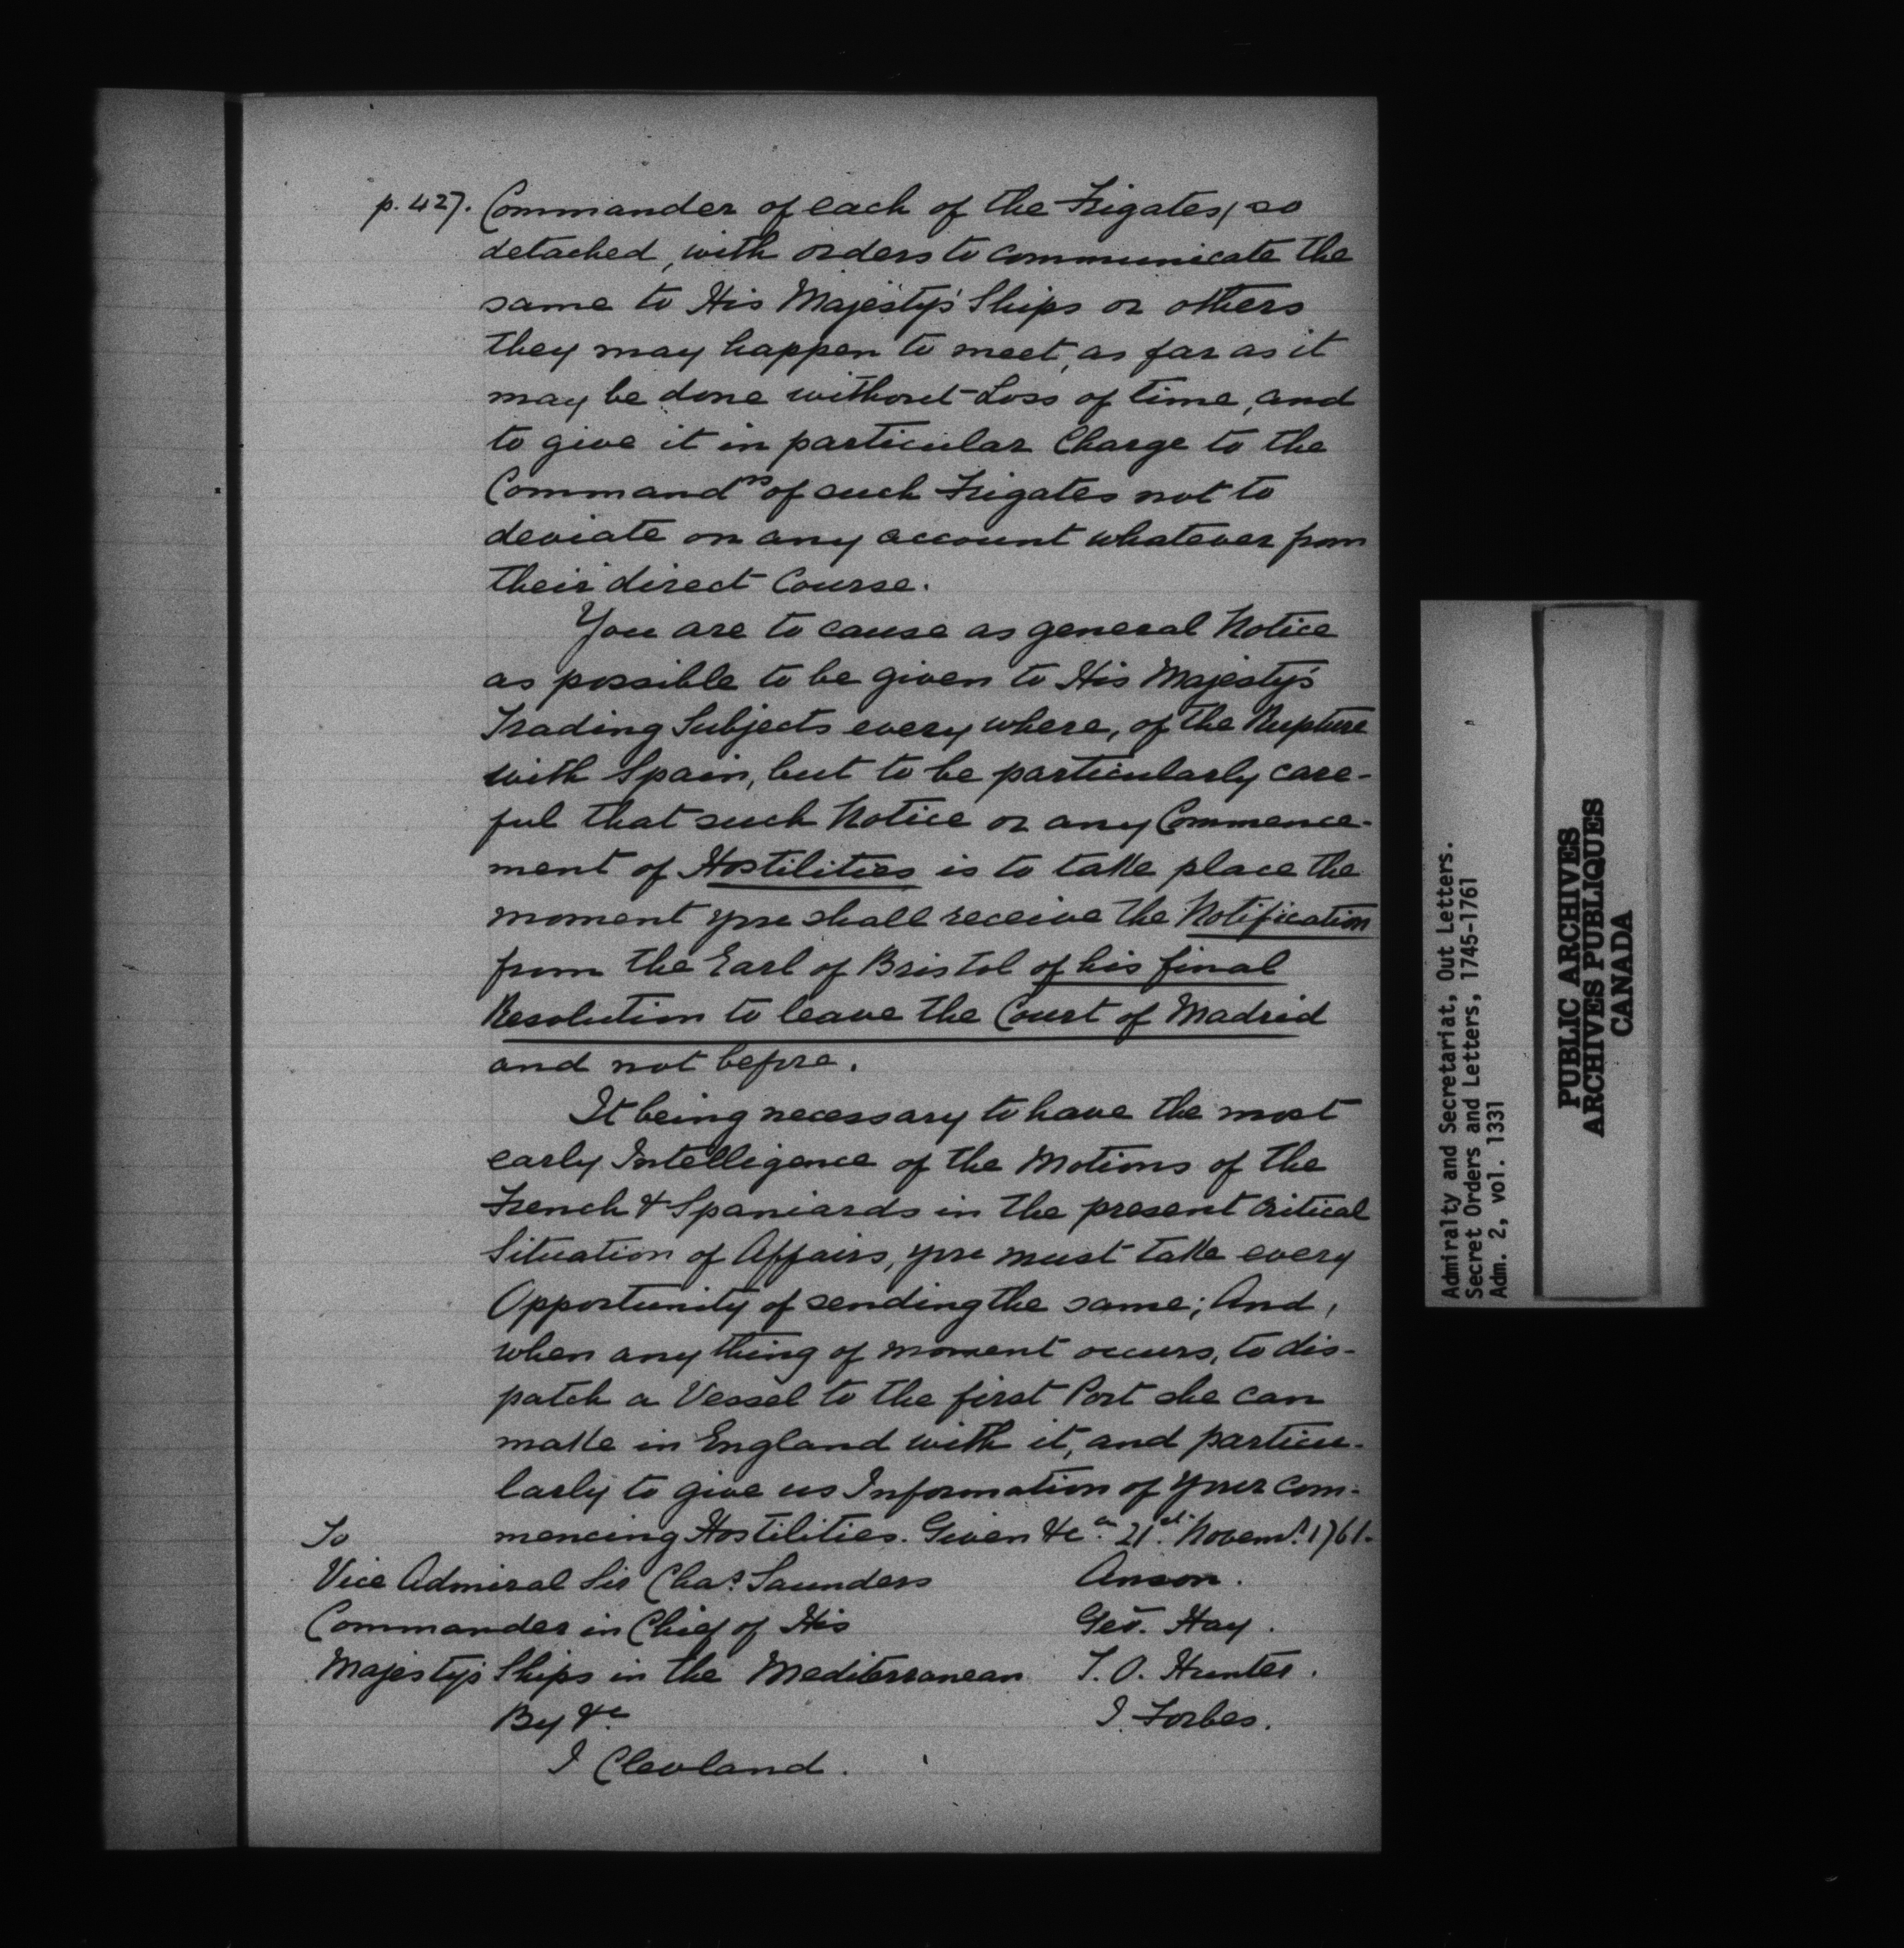 p. 427. Commander of each of the Frigates, so
detached, with orders to communicate the
same to His Majesty's Ships or others
they may happen to meet, as far as it
may be done without Loss of time, and
to give it in particular Charge to the
Command.rs of such Frigates not to
deviate on any account whatever from
their direct Course.
You are to cause as general Notice
as possible to be given to His Majesty's
Trading Subjects every where, of the Rupture
with Spain, but to be particularly care-
ful that such Notice or any Commence-
ment of Hostilities is to take place the
moment you shall receive the Notification
from the Earl of Bristol of his final
Resolution to leave the Court of Madrid
and not before.
It being necessary to have the most
early Intelligence of the Motions of the
French & Spaniards in the present critical
Situation of Affairs, you must take every
Opportunity of sending the same; And,
when any thing of moment occurs, to dis-
patch a Vessel to the first Port she can
make in England with it, and particu-
larly to give us Information of your com-
mencing Hostilities. Given &c.a 21st. Novem.r 1761.
To
Vice Admiral Sir Cha.s Saunders
Commander in Chief of His
Majesty's Ships in the Mediterranean
By &c
J Clevland.
Anson.
Geo. Hay.
T. O. Hunter.
J. Forbes.
Admiralty and Secretariat, Out Letters.
Secret Orders and Letters, 1745-1761
Adm. 2, vol. 1331
PUBLIC ARCHIVES
ARCHIVES PUBLIQUES
CANADA